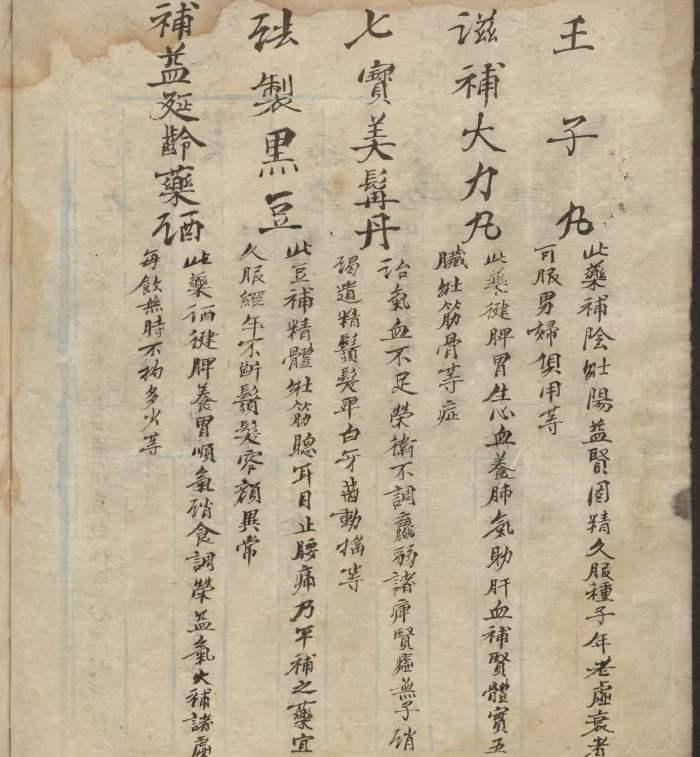 王子丸
此藥補陰壯陽益腎固精久服種子年老虛衰者
可服男婦俱用等
滋補大力丸
此藥健脾胃生心血養肺氣助肝血補腎體實五
臟壯筋骨等症
七寶美髯丹
治氣血不足榮衛不調羸弱諸症腎虛無子消
渴遺精鬚髮早白牙齒動搖等
法製黑豆
此豆補精體壯筋聰耳目止腰痛乃平補之藥宜
久服經年不斷鬚髮容顏異常
補益延齡藥酒
此藥酒健脾養胃順氣消食調榮益氣大補諸虛
每飲無時不拘多少等